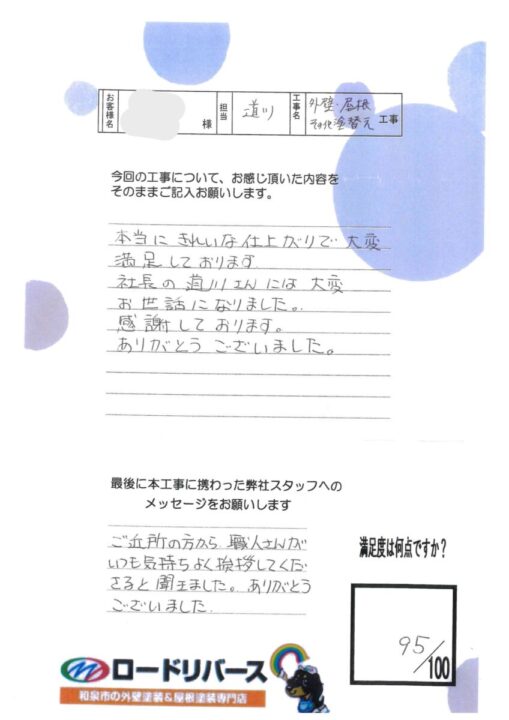 お客様名 様 担当 道川 工事名 外壁・屋根
その他塗替え 工事
今回の工事について、お感じ頂いた内容を
そのままご記入お願いします。
本当に きれいな仕上がりで 大変
満足しております
社長の 道川さんには 大変
お世話になりました。
感謝しております。
ありがとう ございました。
最後に本工事に携わった弊社スタッフへの
メッセージをお願いします
ご近所の方から 職人さんが
いつも気持ちよく挨拶してくだ
さると聞きました。ありがとう
ございました.
満足度は何点ですか？
95/100
ロードリバース
和泉市の外壁塗装&屋根塗装専門店